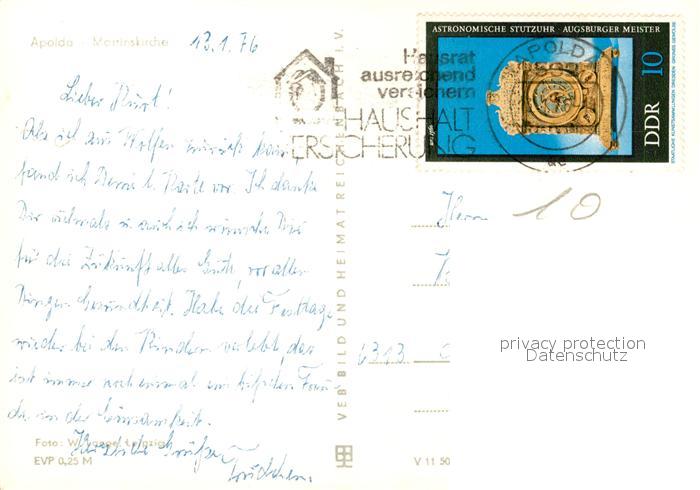 Apolda - Martinskirche
13.1.76
Lieber Kurt!
Als ich aus Wolfen zurück kam
fand ich Deine l. Karte vor. Ich danke
Dir vielmals u. auch ich wünsche Dir
für die Zukunft alles Gute, vor allen
Dingen Gesundheit. Habe die Festtage
wieder bei den Kindern verlebt, das
ist immer noch einmal ein bißchen Freu-
de in der Einsamkeit.
Herzliche Grüße
Trudchen.
Foto: W. Leipzig
EVP 0,25 M
VEB BILD UND HEIMAT REICHENBACH I. V.
V 11 50
Hausrat
ausreichend
versichern
HAUSHALT
VERSICHERUNG
ASTRONOMISCHE STUTZUHR · AUGSBURGER MEISTER
um 1560
DDR 10
STAATLICHE KUNSTSAMMLUNGEN DRESDEN · GRÜNES GEWÖLBE
APOLD
Herrn
10
6313
privacy protection
Datenschutz